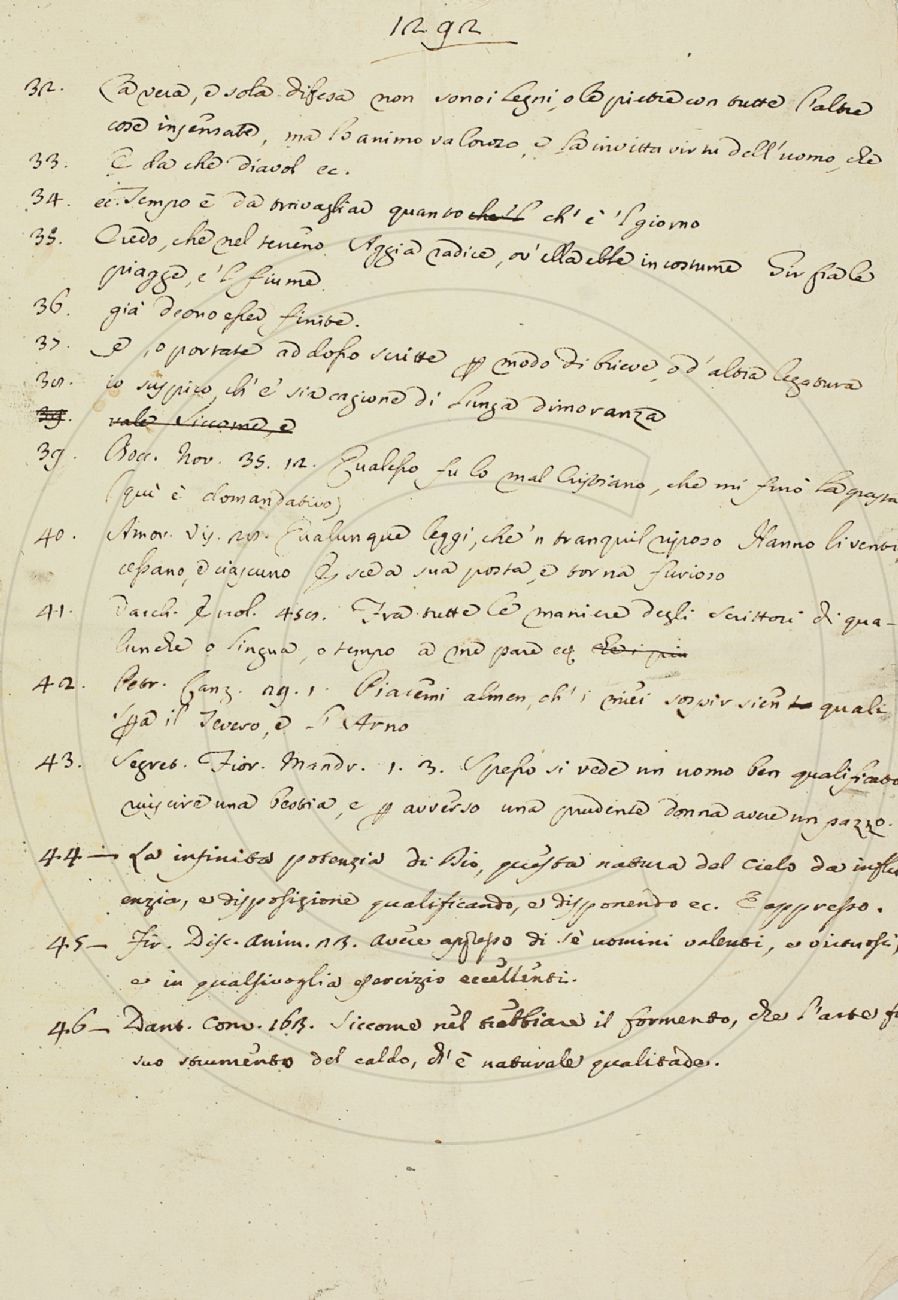 1292
32. La vera, e sola difesa non sono i legni, o le pietre con tutte l'altre
cose insensate, ma lo animo valoroso, e la invitta virtù dell'uomo, che
33. E da che diavol ec.
34. ec. Tempo è da travagliar quanto che 'l ch' è 'l giorno
35. Credo, che nel terreno Aggia radice, ov' ella ebbe in costume Gir fra le
piagge, e 'l fiume.
36. già deono esser finite.
37. e, o portate addosso scritte p modo di brieve, o d'altra legatura
38. io suspico, ch' e' sia cagione di lunga dimoranza
39. vale Siccome, e
39. Bocc. Nov. 35. 12. Qual esso fu lo mal Cristiano, che mi furò la grasta
(qui è domandativo)
40. Amor. Vis. Qualunque leggi, che 'n tranquil riposo Hanno li venti
cessano, e ciascuno sua posta, e torna furioso
41. Varch. Ercol. Fra tutte le maniere degli Scrittori di qua-
lunche o lingua, o tempo a me pare ec.
42. Petr. Canz. 29. 1. Piacemi almen, ch' i miei sospir sien to quali
Spera il Tevero, e l'Arno
43. Segret. Fior. Mandr. 1. 3. Spesso si vede un uomo ben qualificato
una bestia, e p avverso una prudente donna avere un pazzo.
44 — La infinita potenzia di Dio, questa natura del cielo da influ
enzia, e disposizione qualificando, e disponendo ec. E appresso.
45 — Fir. Disc. anim. 13. avere appresso di sè uomini valenti, e virtuosi,
e in qualsivoglia esercizio eccellenti.
46 — Dant. Conv. 163. Siccome nel trebbiare il formento, che l'arte f
suo strumento del caldo, ch' è naturale qualitade.